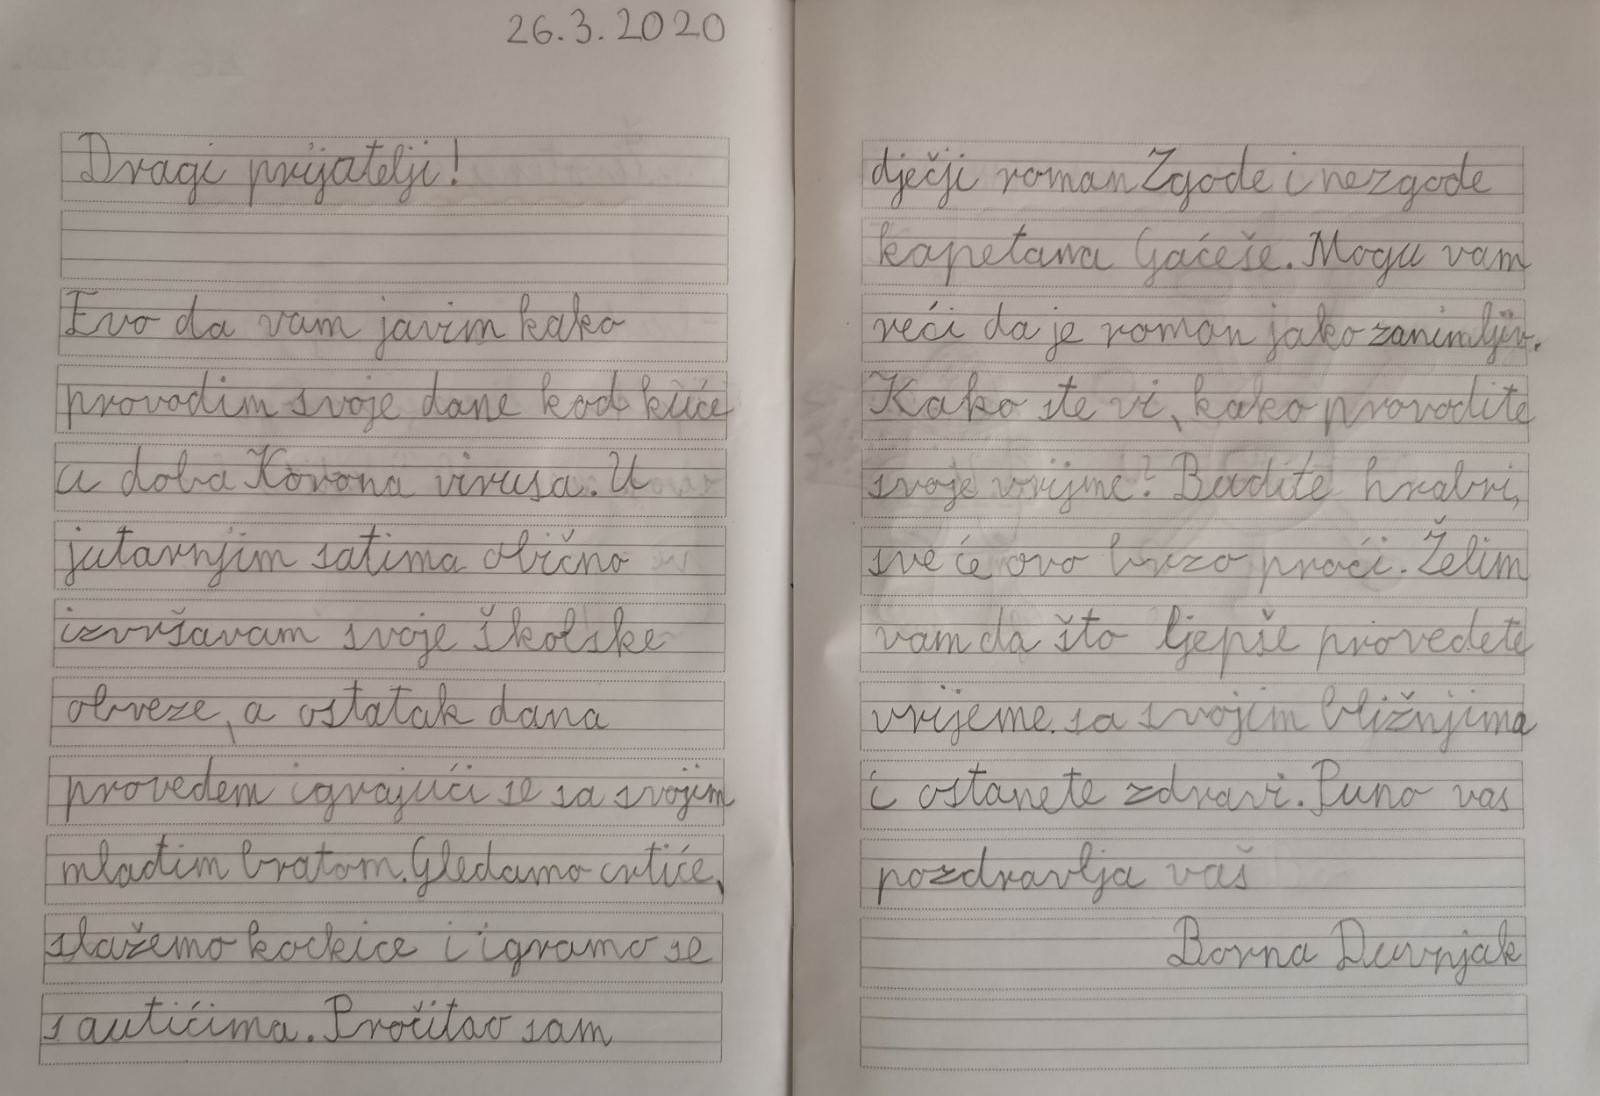 26.3.2020
Dragi prijatelji!
Evo da vam javim kako
provodim svoje dane kod kuće
u doba Korona virusa. U
jutarnjim satima obično
izvršavam svoje školske
obveze, a ostatak dana
provedem igrajući se sa svojim
mlađim bratom. Gledamo crtiće,
slažemo kockice i igramo se
s autićima. Pročitao sam
dječji roman Zgode i nezgode
kapetana Gaćeše. Mogu vam
reći da je roman jako zanimljiv.
Kako ste vi, kako provodite
svoje vrijme? Budite hrabri,
sve će ovo brzo proći. Želim
vam da što ljepše provedete
vrijeme sa svojim bližnjima
i ostanete zdravi. Puno vas
pozdravlja vaš
Borna Duvnjak